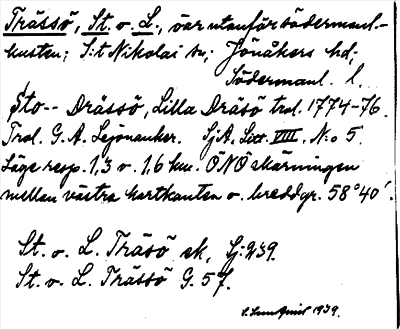 Trässö, St. o. L., öar utanför södermanl.-
kusten; S:t Nikolai sn; Jönåkers hd;
Södermanl. l.
Sto-- Drässö, Lilla Dräsö trol. 1774-76.
Trol. G. A. Lejonanker. SjA. Litt. VIII. N:o 5.
Läge resp. 1,3 o. 1,6 km. ÖNÖ skärningen
mellan västra kartkanten o. breddgr. 58°40'.
St. o. L. Träsö ek. Sj: 939.
St. o. L. Trässö G. 5 f.
1939.